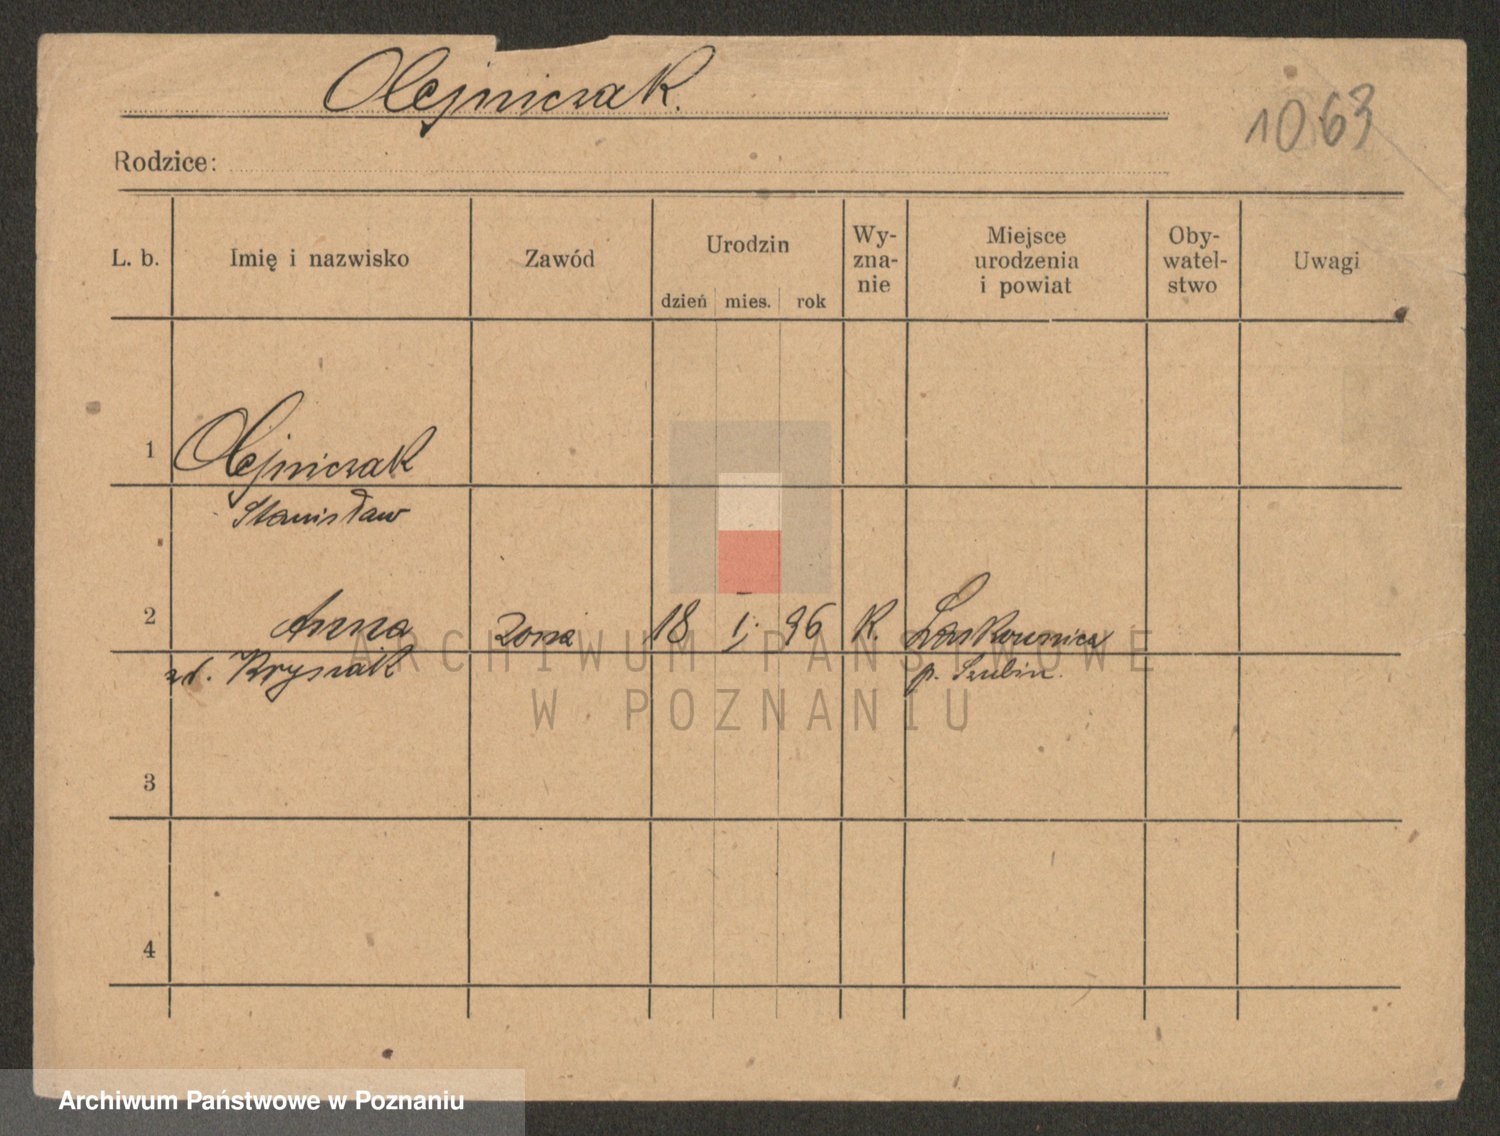 Olejniczak.
1063
Rodzice:
L. b.
Imię i nazwisko
Zawód
Urodzin
dzień mies. rok
Wy-
zna-
nie
Miejsce
urodzenia
i powiat
Oby-
watel-
stwo
Uwagi
1 Olejniczak
Stanisław
2 Anna żona 18 I. 96 K. Laskownica
zd. Krysiak p. Szubin.
3
4
ARCHIWUM PAŃSTWOWE
W POZNANIU
Archiwum Państwowe w Poznaniu